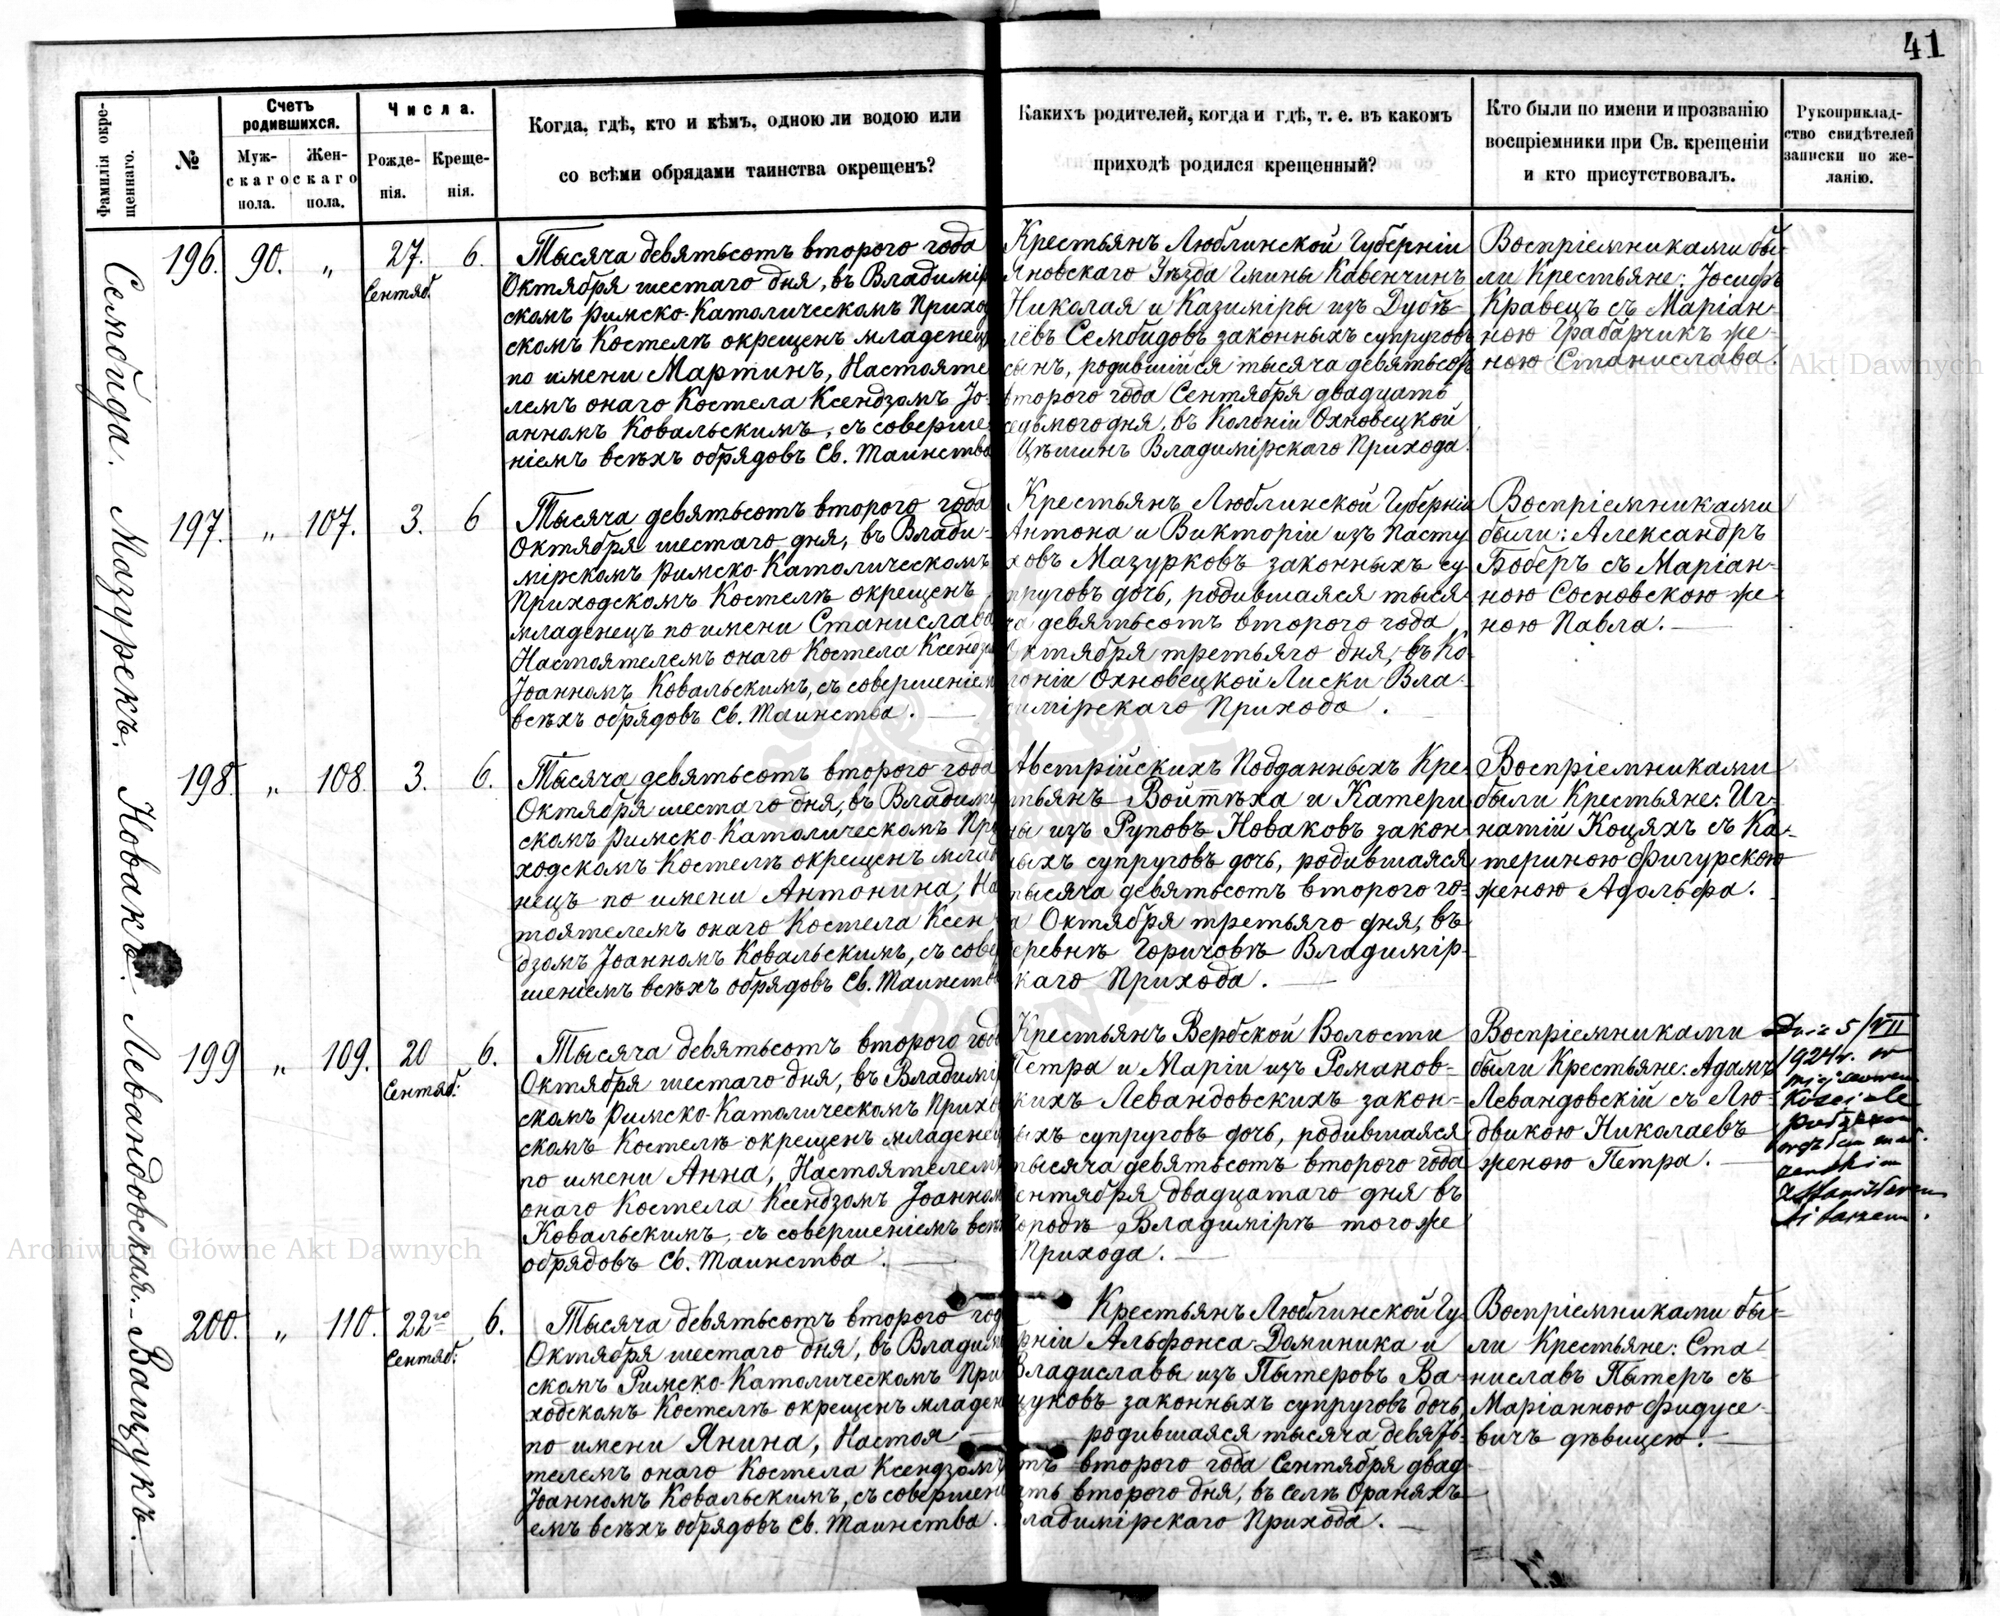 41
Фамилія окре-
щеннаго.
№
Счетъ
родившихся.
Муж-
скаго
пола.
Жен-
скаго
пола.
Числа.
Рожде-
нія.
Креще-
нія.
Когда, гдѣ, кто и кѣмъ, одною ли водою или
со всѣми обрядами таинства окрещенъ?
Какихъ родителей, когда и гдѣ, т. е. въ какомъ
приходѣ родился крещенный?
Кто были по имени и прозванію
воспріемники при Св. крещеніи
и кто присутствовалъ.
Рукоприклад-
ство свидѣтелей
записки по же-
ланію.
Сембида.
196. 90. „ 27. Сентяб. 6.
Тысяча девятьсотъ второго года
Октября шестаго дня, въ Владимір
скомъ Римско-Католическомъ Приход
скомъ Костелѣ окрещенъ младенецъ
по имени Мартинъ, Настояте
лемъ онаго Костела Ксендзомъ Іо-
анномъ Ковальскимъ, съ соверше
ніемъ всѣхъ обрядовъ Св. Таинства
Крестьянъ Люблинской Губерніи
Яновскаго Уѣзда Гмины Кавенчинъ
Николая и Казиміры изъ Дубѣ-
лёвъ Сембидовъ законныхъ супруговъ
сынъ, родившійся тысяча девятьсот
второго года Сентября двадцать
седьмого дня, въ Колоніи Охновецкой
Цѣшинъ Владимірскаго Прихода.
Воспріемниками бы-
ли Крестьяне: Іосифъ
Кравецъ съ Маріан-
ною Грабарчикъ же-
ною Станислава.
Мазурекъ.
197. „ 107. 3. 6
Тысяча девятьсотъ второго года
Октября шестаго дня, въ Влади-
мірскомъ Римско-Католическомъ
Приходскомъ Костелѣ окрещенъ
младенецъ по имени Станислава
Настоятелемъ онаго Костела Ксендзо
Іоанномъ Ковальскимъ, съ совершеніем
всѣхъ обрядовъ Св. Таинства.
Крестьянъ Люблинской Губерніи
Антона и Викторіи изъ Пасту
ховъ Мазурковъ законныхъ су
пруговъ дочь, родившаяся тыся
ча девятьсотъ второго года
Октября третьяго дня, въ Ко-
лоніи Охновецкой Лиски Вла-
димірскаго Прихода.
Воспріемниками
были: Александръ
Боберъ съ Маріан-
ною Сосновскою же
ною Павла.
Новакъ.
198. „ 108. 3. 6.
Тысяча девятьсотъ второго года
Октября шестаго дня, въ Владимі
скомъ Римско-Католическомъ При
ходскомъ Костелѣ окрещенъ младе
нецъ по имени Антонина, На
тоятелемъ онаго Костела Ксен
дзомъ Іоанномъ Ковальскимъ, съ совер
шеніемъ всѣхъ обрядовъ Св. Таинства
Австрійскихъ Подданныхъ Кре-
тьянъ Войтѣха и Катери
ны изъ Руповъ Новаковъ закон-
ныхъ супруговъ дочь, родившаяся
тысяча девятьсотъ второго го-
да Октября третьяго дня, въ
деревнѣ Горичовѣ Владимір-
скаго Прихода.
Воспріемниками
были Крестьяне: Иг-
натій Коцяхъ съ Ка-
териною Фигурскою
женою Адольфа.
Левандовская.
199 „ 109. 20 Сентяб: 6.
Тысяча девятьсотъ второго года
Октября шестаго дня, въ Владимір
скомъ Римско-Католическомъ Приход
скомъ Костелѣ окрещенъ младенец
по имени Анна, Настоятелемъ
онаго Костела Ксендзомъ Іоанном
Ковальскимъ, съ совершеніемъ всѣх
обрядовъ Св. Таинства.
Крестьянъ Вербской Волости
Петра и Маріи изъ Романов-
скихъ Левандовскихъ закон-
ныхъ супруговъ дочь, родившаяся
тысяча девятьсотъ второго года
Сентября двадцатаго дня въ
городѣ Владимірѣ того же
Прихода.
Воспріемниками
были Крестьяне: Адамъ
Левандовскій съ Лю-
двикою Николаевъ
женою Петра.
Dnia 5/VII
1924r. w
miejscowym
Kościele
Ващукъ.
200. „ 110. 22го Сентяб: 6.
Тысяча девятьсотъ второго год
Октября шестаго дня, въ Владимі
скомъ Римско-Католическомъ При
ходскомъ Костелѣ окрещенъ младен
по имени Янина, Настоя
телемъ онаго Костела Ксендзомъ
Іоанномъ Ковальскимъ, съ совершені
емъ всѣхъ обрядовъ Св. Таинства.
Крестьянъ Люблинской Гу-
берніи Альфонса-Доминика и
Владиславы изъ Пытеровъ Ва-
щуковъ законныхъ супруговъ дочь,
родившаяся тысяча девять-
сотъ второго года Сентября двад
цать второго дня, въ селѣ Ораняхъ
Владимірскаго Прихода.
Воспріемниками бы-
ли Крестьяне: Ста-
ниславъ Пытеръ съ
Маріанною Фидусе-
вичъ дѣвицею.
Archiwum Główne Akt Dawnych
Archiwum Główne Akt Dawnych